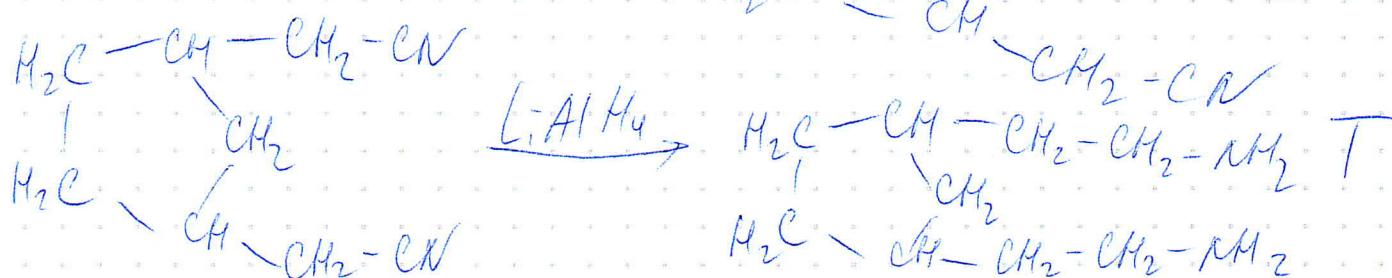 CH
CH₂-CN
H₂C-CH-CH₂-CN
CH₂
H₂C
CH
CH₂-CN
LiAlH₄
H₂C-CH-CH₂-CH₂-NH₂ T
CH₂
H₂C
CH-CH₂-CH₂-NH₂